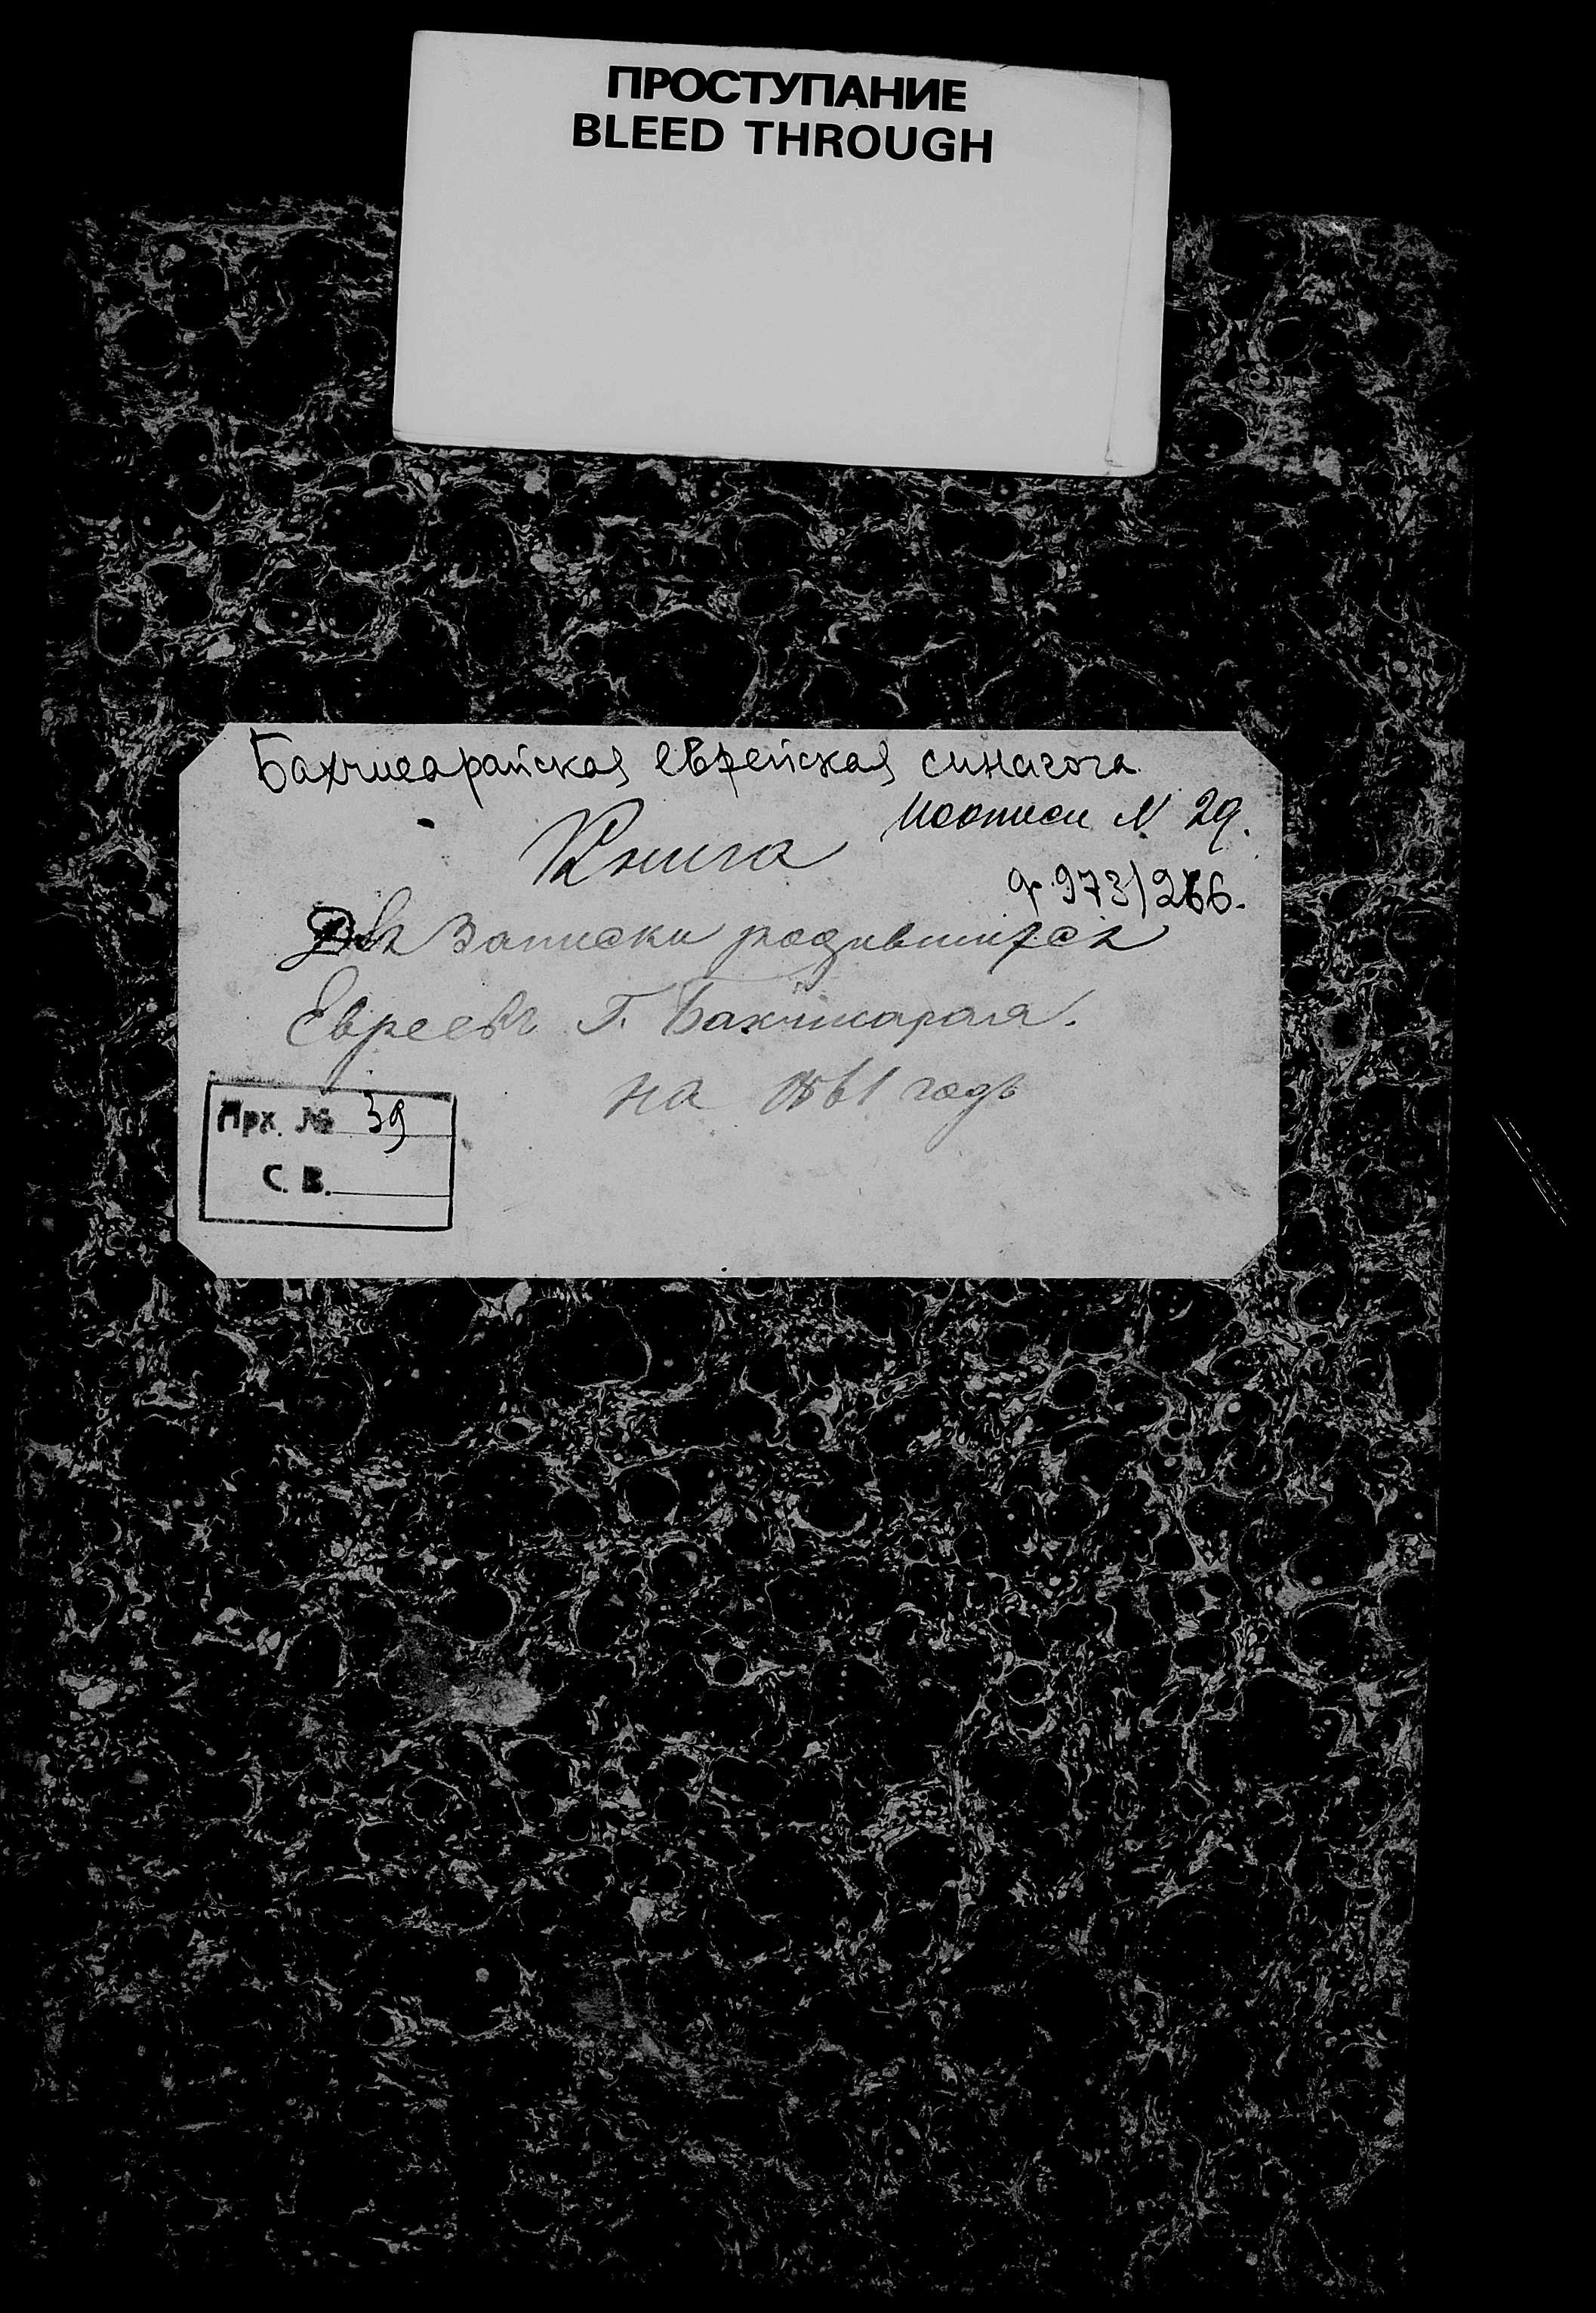 ПРОСТУПАНИЕ
BLEED THROUGH
Бахчисарайская еврейская синагога
По описи № 29.
Книга
ф. 973/266.
Для записки родившихся
Евреевъ Г. Бахчисарая.
на 1861 годъ
Прх. № 39
С. В.